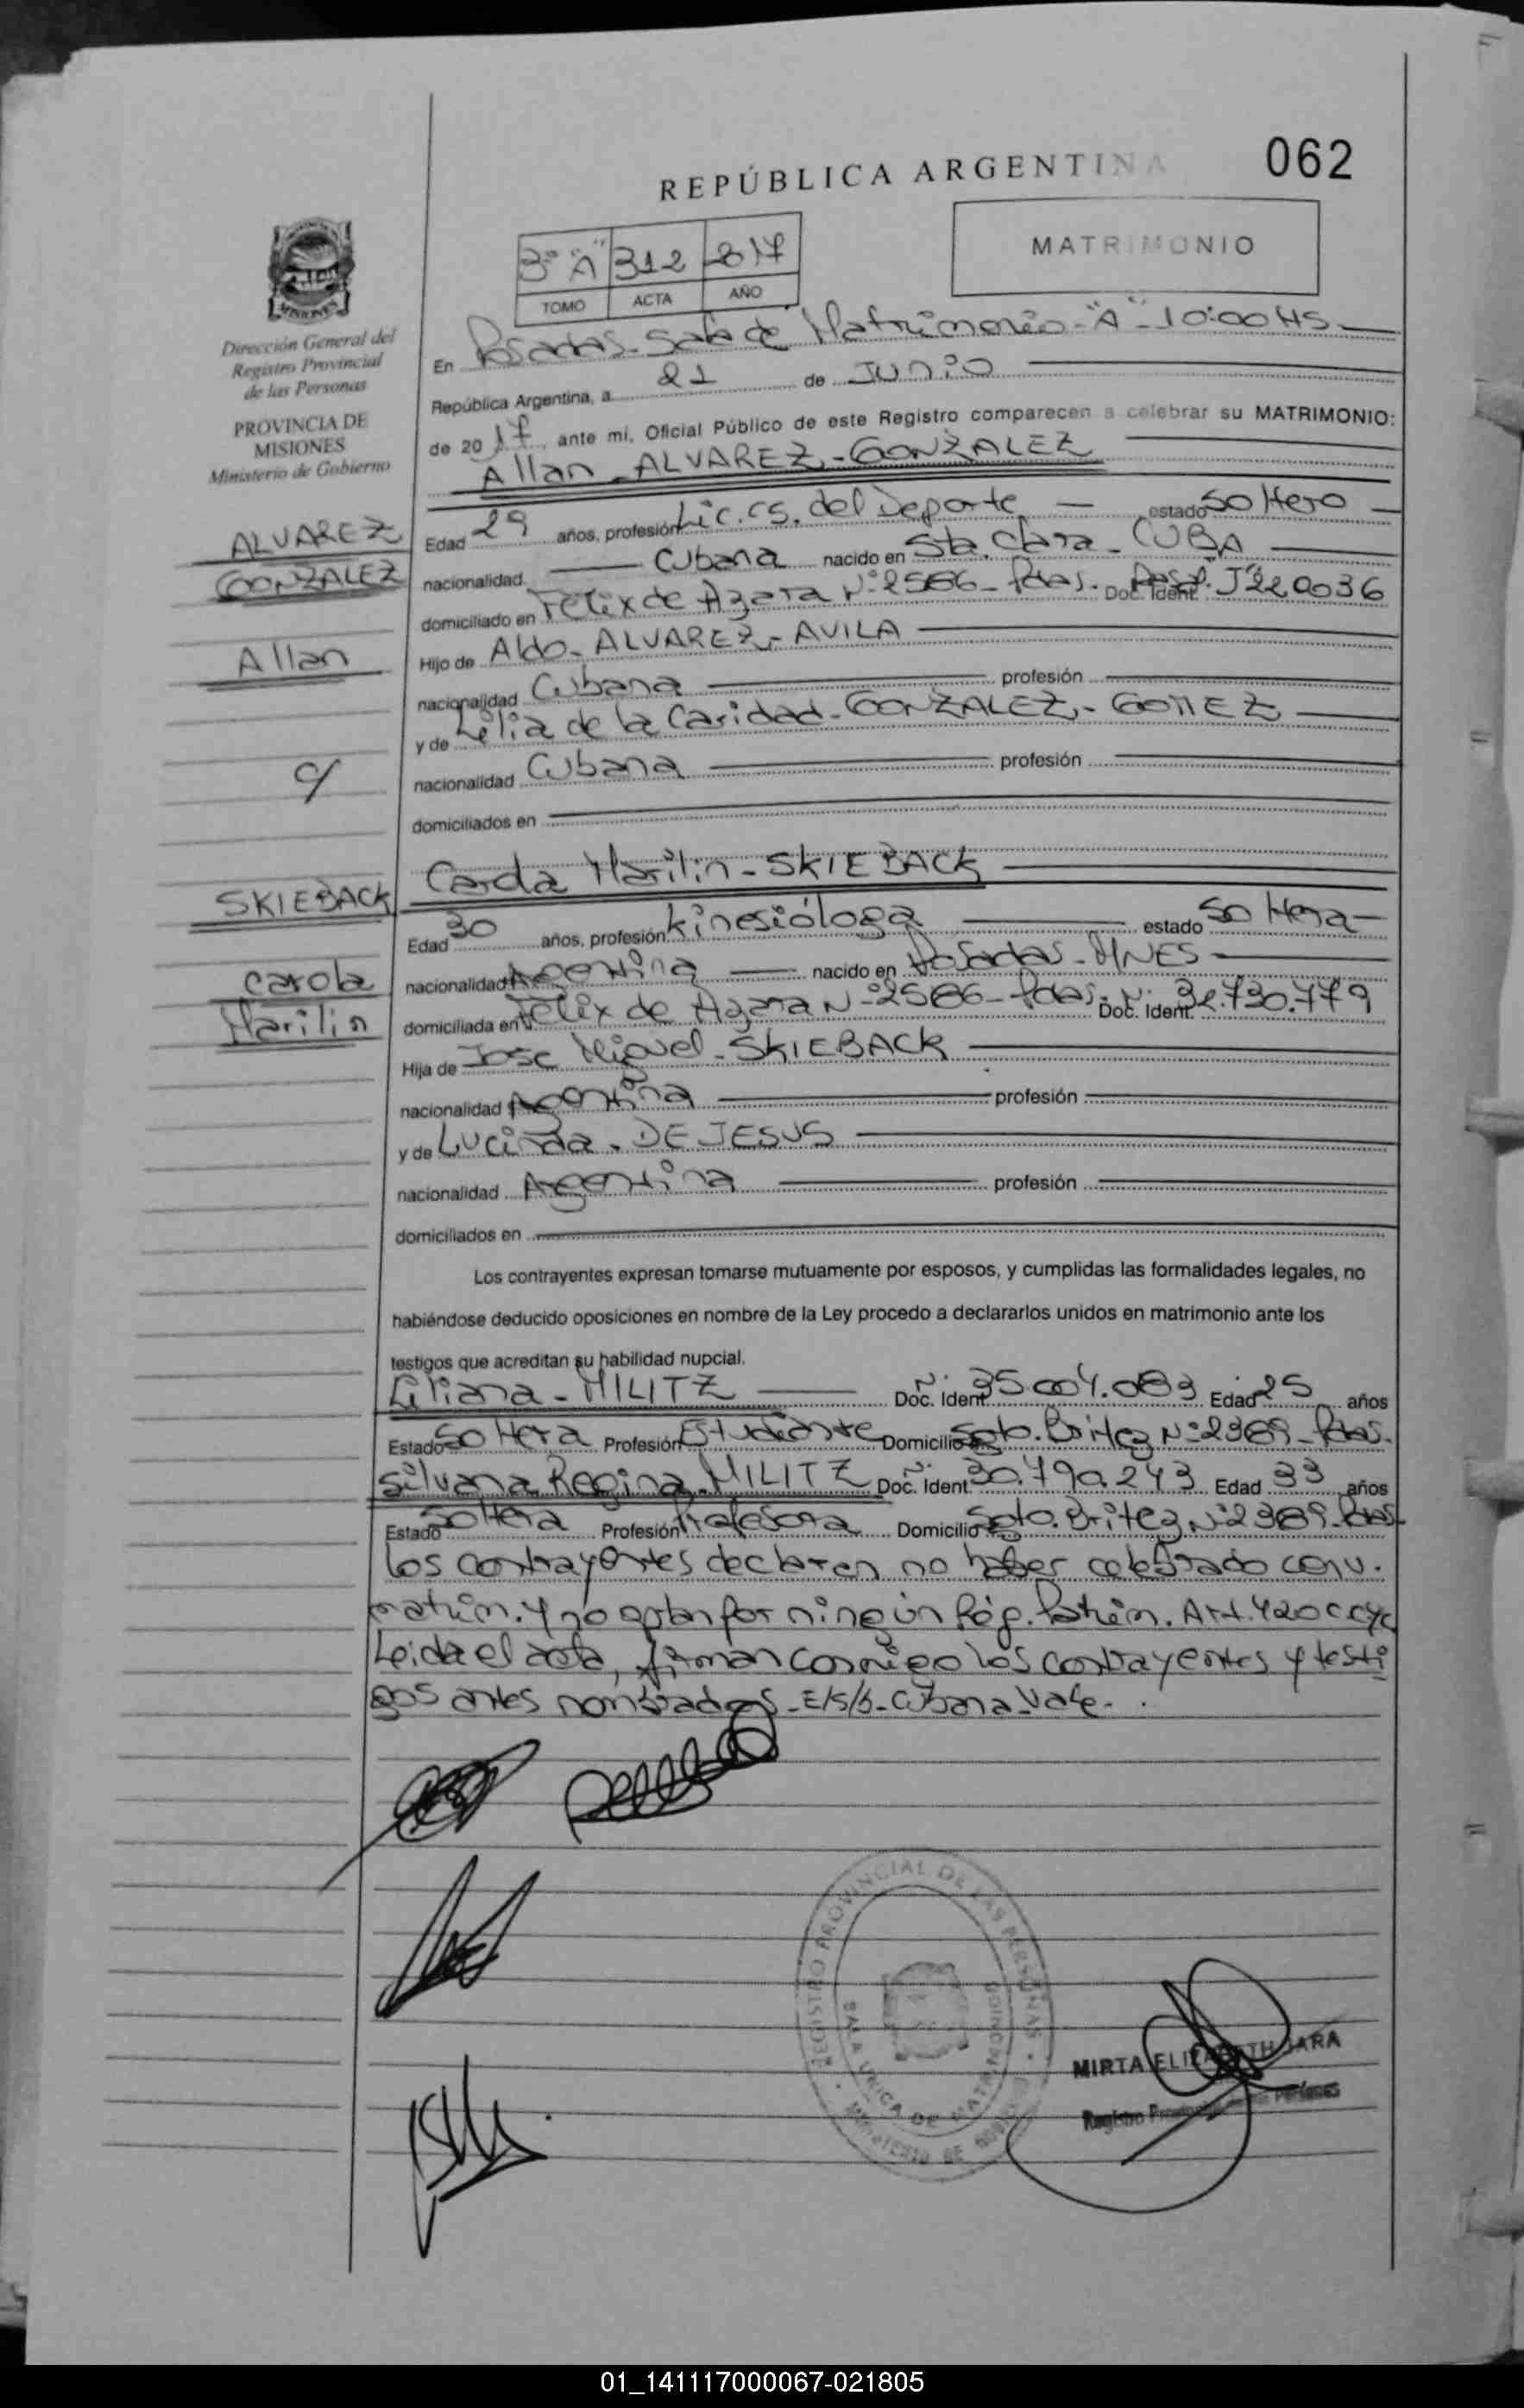 062
REPÚBLICA ARGENTINA
MATRIMONIO
3º "A" 312 2017
TOMO ACTA AÑO
MISIONES
Dirección General del
Registro Provincial
de las Personas
PROVINCIA DE
MISIONES
Ministerio de Gobierno
En Posadas - Sala de Matrimonio - "A" - 10:00 HS
República Argentina, a 21 de JUNIO
de 2017, ante mi, Oficial Público de este Registro comparecen a celebrar su MATRIMONIO:
Allan - ALVAREZ - GONZALEZ
ALVAREZ
GONZALEZ
Allan
c/
SKIEBACK
Carola
Marilin
Edad 29 años, profesión Lic. cs. del Deporte estado Soltero
nacionalidad Cubana nacido en Sta. Clara - CUBA
domiciliado en Félix de Azara Nº 2586 - Pdas. Doc. Ident. J220036
Hijo de Aldo - ALVAREZ - AVILA
nacionalidad Cubana profesión
y de Lelia de la Caridad - GONZALEZ - GOMEZ
nacionalidad Cubana profesión
domiciliados en
Carola Marilin - SKIEBACK
Edad 30 años, profesión Kinesióloga estado Soltera
nacionalidad Argentina nacido en Posadas - MNES
domiciliada en Félix de Azara Nº 2586 - Pdas. Doc. Ident. 32.730.779
Hija de José Miguel - SKIEBACK
nacionalidad Argentina profesión
y de Lucinda - DE JESUS
nacionalidad Argentina profesión
domiciliados en
Los contrayentes expresan tomarse mutuamente por esposos, y cumplidas las formalidades legales, no
habiéndose deducido oposiciones en nombre de la Ley procedo a declararlos unidos en matrimonio ante los
testigos que acreditan su habilidad nupcial.
Liliana - MILITZ Doc. Ident. 35.004.083 Edad 25 años
Estado Soltera Profesión Estudiante Domicilio Sgto. Britez Nº 2389 - Pdas.
Silvana Regina - MILITZ Doc. Ident. 30.790.243 Edad 33 años
Estado Soltera Profesión Profesora Domicilio Sgto. Britez Nº 2389 - Pdas
Los contrayentes declaran no haber celebrado conv.
matrim. y no optan por ningún Rég. Patrim. Art. 420 CCyC
Leida el acta, firman conmigo los contrayentes y testi
gos antes nombrados - E/S/b - Cubana Vale.
REGISTRO PROVINCIAL DE LAS PERSONAS
SALA UNICA DE MATRIMONIO
MINISTERIO DE GOBIERNO
MIRTA ELIZABETH JARA
Registro Provincial
01_141117000067-021805